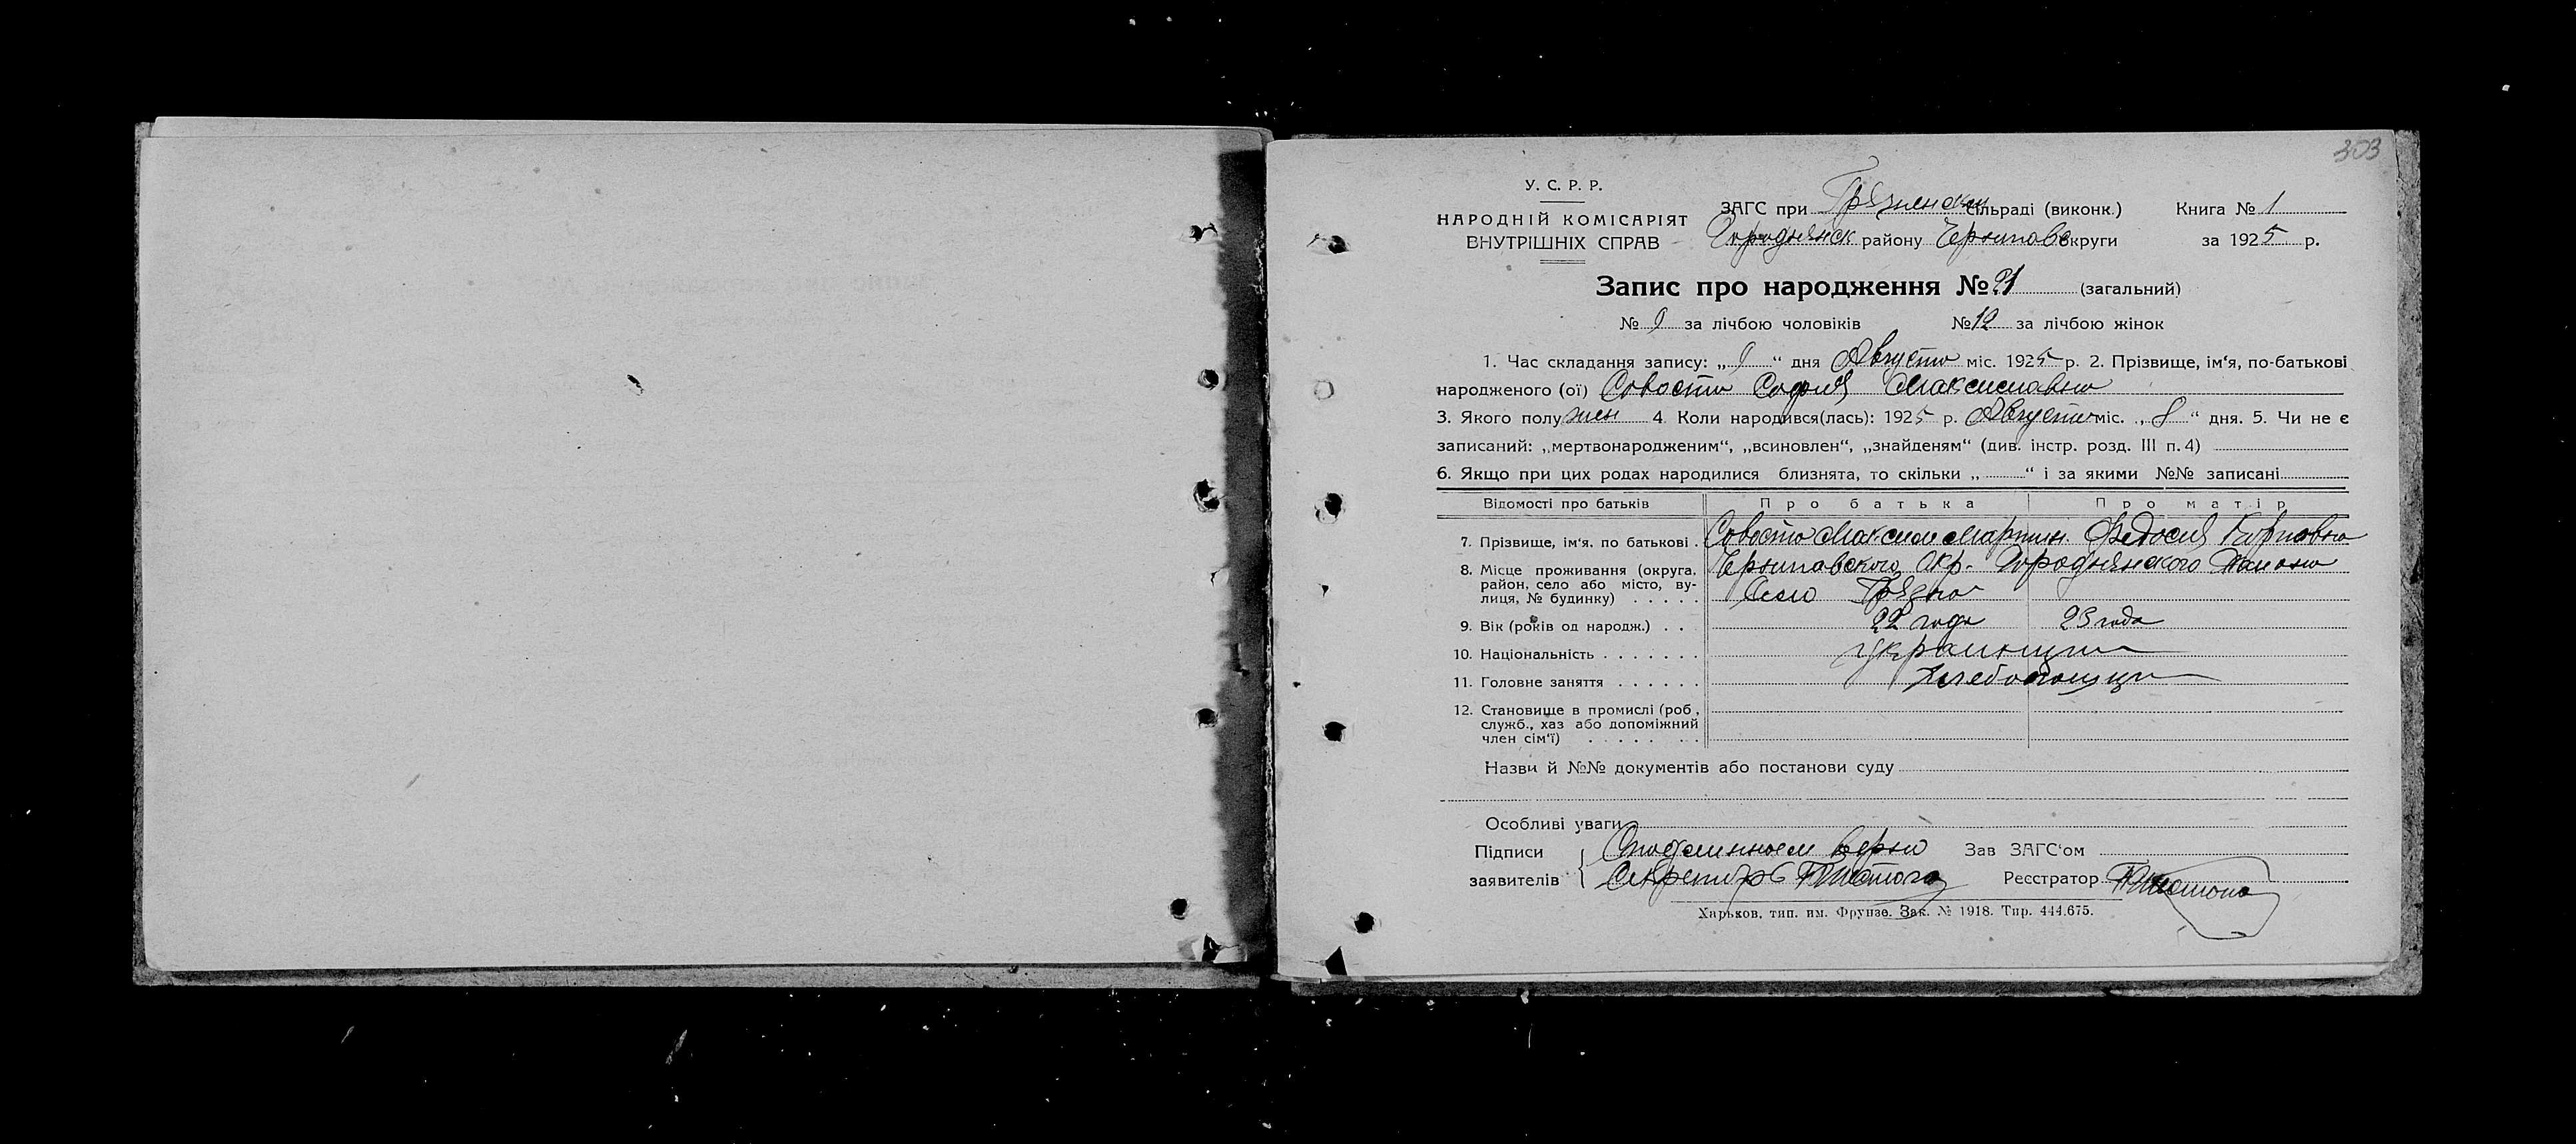 303
У. С. Р. Р.
НАРОДНІЙ КОМІСАРІЯТ
ВНУТРІШНІХ СПРАВ
ЗАГС при Грязнянськ сільраді (виконк.) Книга № 1
Городнянск району Черниговс округи за 1925 р.
Запис про народження № 21 (загальний)
№ 9 за лічбою чоловіків № 12 за лічбою жінок
1. Час складання запису: „ 9 “ дня Августа міс. 1925 р. 2. Прізвище, ім‘я, по-батькові
народженого (ої) Совоста София Максимовна
3. Якого полу жен 4 Коли народився(лась): 1925 р. Августа міс. „ 8 “ дня. 5. Чи не є
записаний: „мертвонародженим“, „всиновлен“, „знайденям“ (див. інстр. розд. III п. 4)
6. Якщо при цих родах народилися близнята, то скільки „ “ і за якими №№ записані
Відомості про батьків Про батька Про матір
7. Прізвище, ім‘я. по батькові Совоста Максим Мартин. Федосия Карповна
8. Місце проживання (округа, район, село або місто, вулиця, № будинку) Черниговского Окр. Городнянского Района
Село Грязна
9. Вік (років од народж.) 22 года 23 года
10. Національність украинци
11. Головне заняття Хлебопашци
12. Становище в промислі (роб., служб., хаз або допоміжний член сім‘ї)
Назви й №№ документів або постанови суду
Особливі уваги
Підписи заявителів С подлинным верно
Секретарь
Зав ЗАГС‘ом
Реєстратор
Харьков, тип. им. Фрунзе. Зак. № 1918. Тир. 444.675.